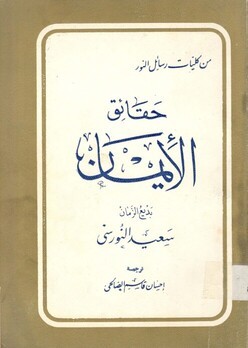 من كليات رسائل النور
حقائق
الأيمان
بديع الزمان
سعيد النورسي
ترجمة
إحسان قاسم الصالحي